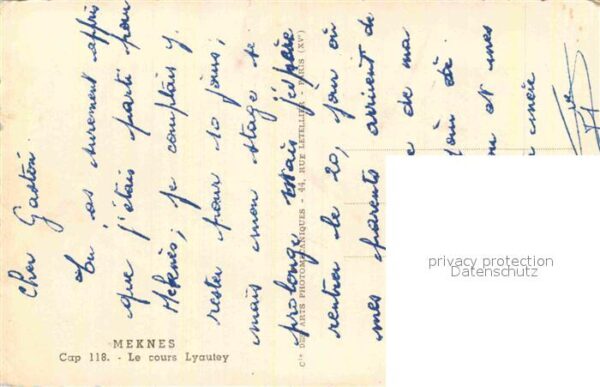 Cher Gaston
Tu as surement appris
que j'étais parti pour
Meknès; je comptais y
rester pour 10 jours;
mais mon stage se
prolonge mais j'espère
rentrer le 20, jour où
mes parents arrivent de
de ma
et mes
MEKNES
Cap 118. - Le cours Lyautey
Cie DES ARTS PHOTOMÉCANIQUES - 44, RUE LETELLIER - PARIS (XVe)
privacy protection
Datenschutz